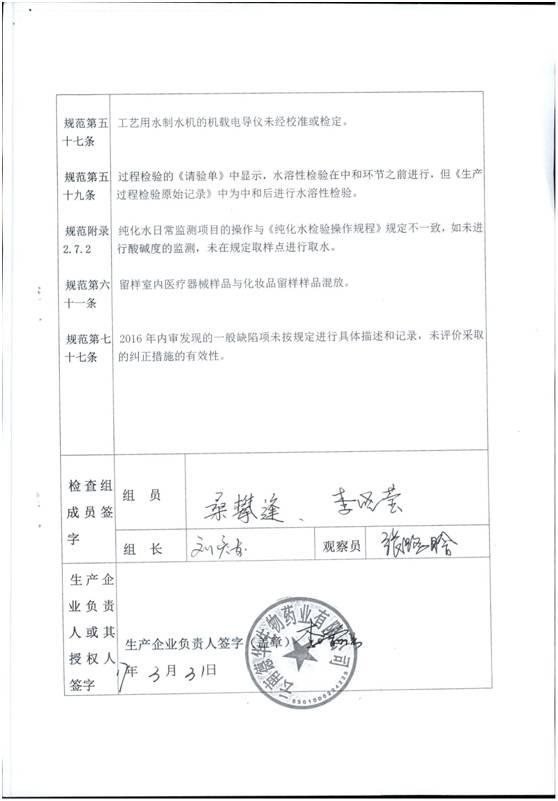 规范第五
十七条
工艺用水制水机的机载电导仪未经校准或检定。
规范第五
十九条
过程检验的《请验单》中显示，水溶性检验在中和环节之前进行，但《生产
过程检验原始记录》中为中和后进行水溶性检验。
规范附录
2.7.2
纯化水日常监测项目的操作与《纯化水检验操作规程》规定不一致，如未进
行酸碱度的监测，未在规定取样点进行取水。
规范第六
十一条
留样室内医疗器械样品与化妆品留样样品混放。
规范第七
十七条
2016 年内审发现的一般缺陷项未按规定进行具体描述和记录，未评价采取
的纠正措施的有效性。
检查组
成员签
字
组 员
桑攀逢、李
组 长
刘
观察员
张
生产企
业负责
人或其
授权人
签字
生产企业负责人签字（盖章）
17年 3 月 31日
云南德华生物药业有限公司